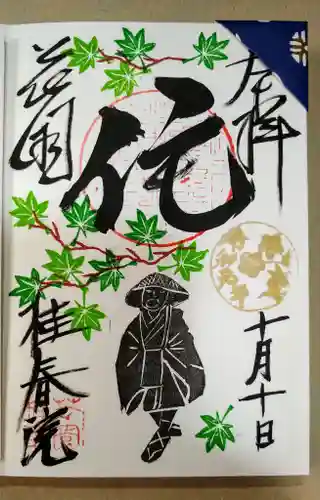 奉拝
十月十日
佗
花園
桂春院